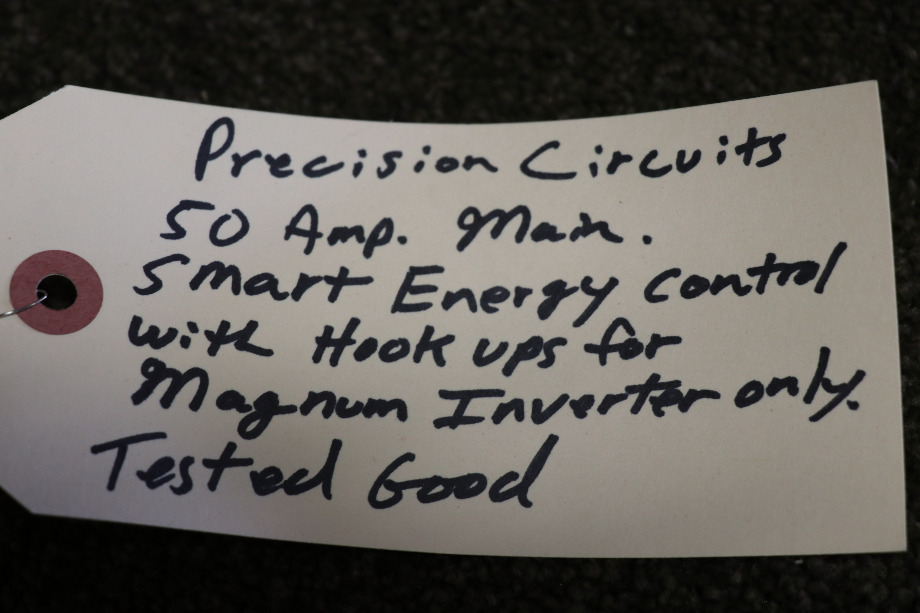 Precision Circuits
50 Amp. Main.
Smart Energy Control
with Hook ups for
Magnum Inverter only.
Tested Good